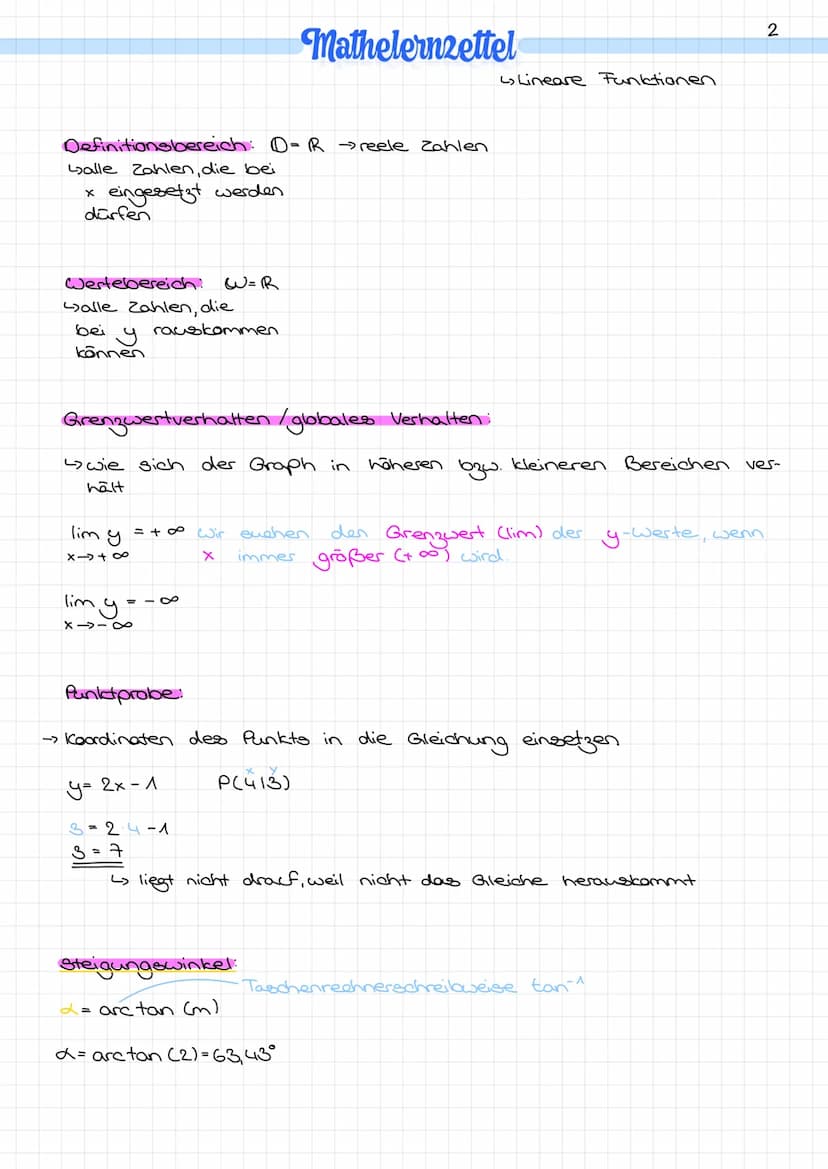 2
Mathelernzettel
↳ Lineare Funktionen
Definitionsbereich: D = ℝ → reele Zahlen
↳ alle Zahlen, die bei
x eingesetzt werden
dürfen
Wertebereich: W = ℝ
↳ alle Zahlen, die
bei y rauskommen
können
Grenzwertverhalten / globales Verhalten:
↳ wie sich der Graph in höheren bzw. kleineren Bereichen ver-
hält
lim y = + ∞ Wir suchen den Grenzwert (lim) der y-Werte, wenn
x → + ∞ x immer größer (+ ∞) wird.
lim y = - ∞
x → - ∞
Punktprobe:
→ Koordinaten des Punkts in die Gleichung einsetzen
x y
y = 2x - 1 P(4|3)
3 = 2 · 4 - 1
3 = 7
↳ liegt nicht drauf, weil nicht das Gleiche herauskommt
Steigungswinkel:
Taschenrechnerschreibweise tan⁻¹
α = arctan (m)
α = arctan (2) = 63,43°